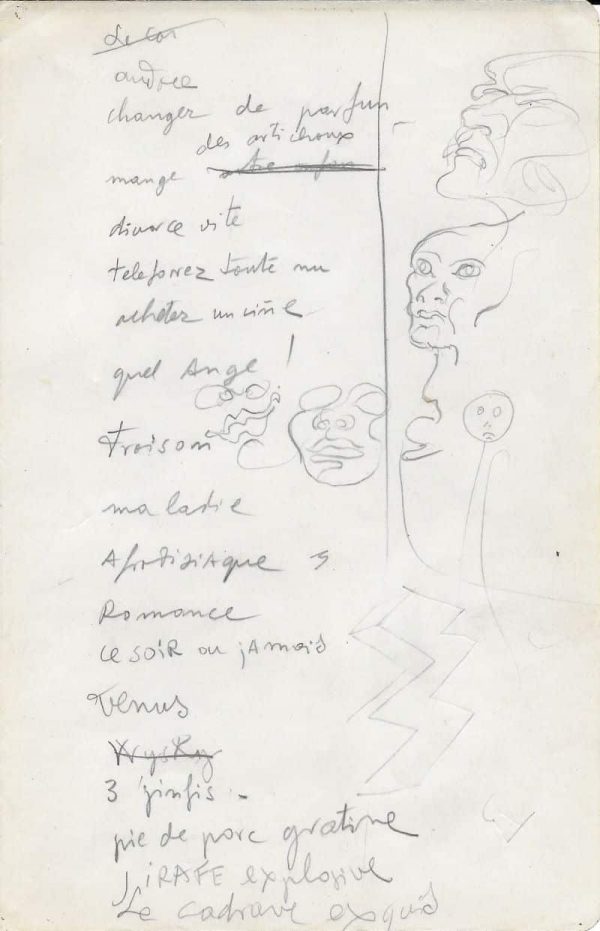 Le Cor
andree
changez de parfun
des artichoux
mange
divorce vite
telefonez toute nu
achetez un cine
quel Ange !
Froison
maladie
Afrodisiaque
Romance
ce soiR ou jAmais
Venus
Wysky
3 jinfis -
pie de porc gratine
jiRAFE explosive
Le cadrave exquis